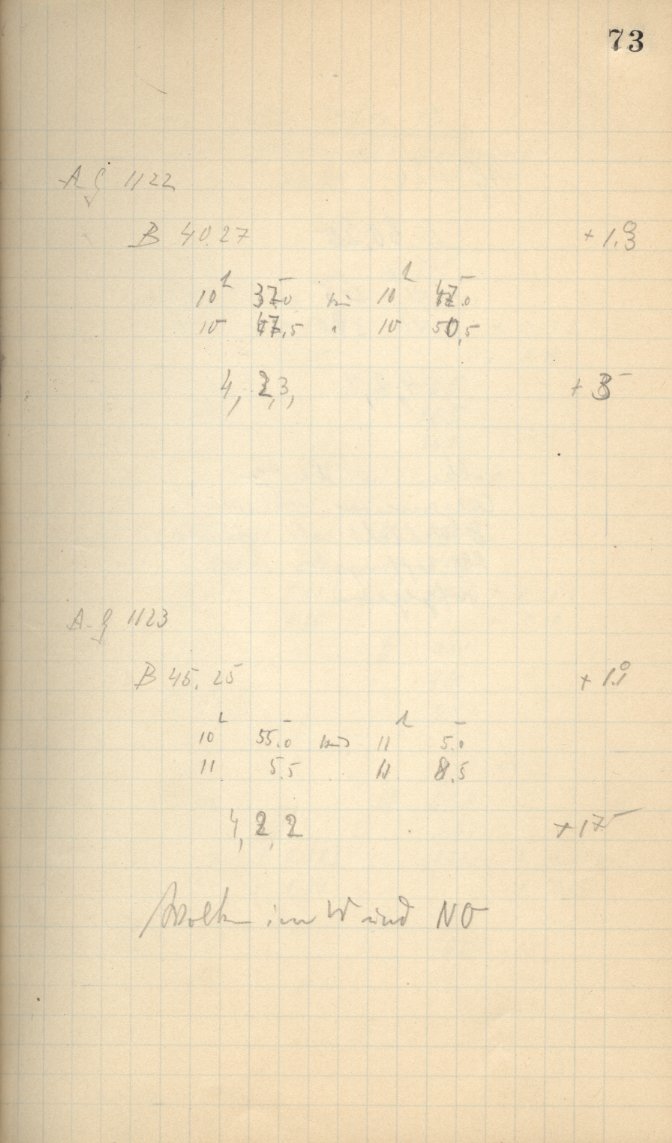 73
A G 1122
B 40.27 +1.3
10h 37.0 bis 10h 47.0
10 47.5 " 10 50.5
4, 2, 3,
A G 1123
B 45.25 +1.1
10h 55.0 bis 11h 5.0
11 5.5 11 8.5
4, 2, 2 +17
Wolken im W und NO